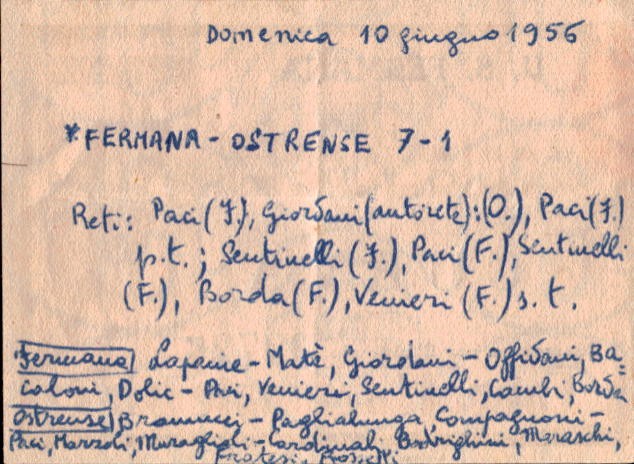 Domenica 10 giugno 1956
*FERMANA - OSTRENSE 7-1
Reti: Paci (F.), Giordani (autorete): (O.), Paci (F.)
p.t.; Sentinelli (F.), Paci (F.), Sentinelli
(F.), Borda (F.), Venieri (F.) s.t.
Fermana Laponie - Matè, Giordani - Offidani, Ba=
caloni, Dolic - Paci, Venieri, Sentinelli, Borda
Ostrense - Paglialunga, Compagnoni -
Paci, Marzoli, - Cardinali, Maraschi,